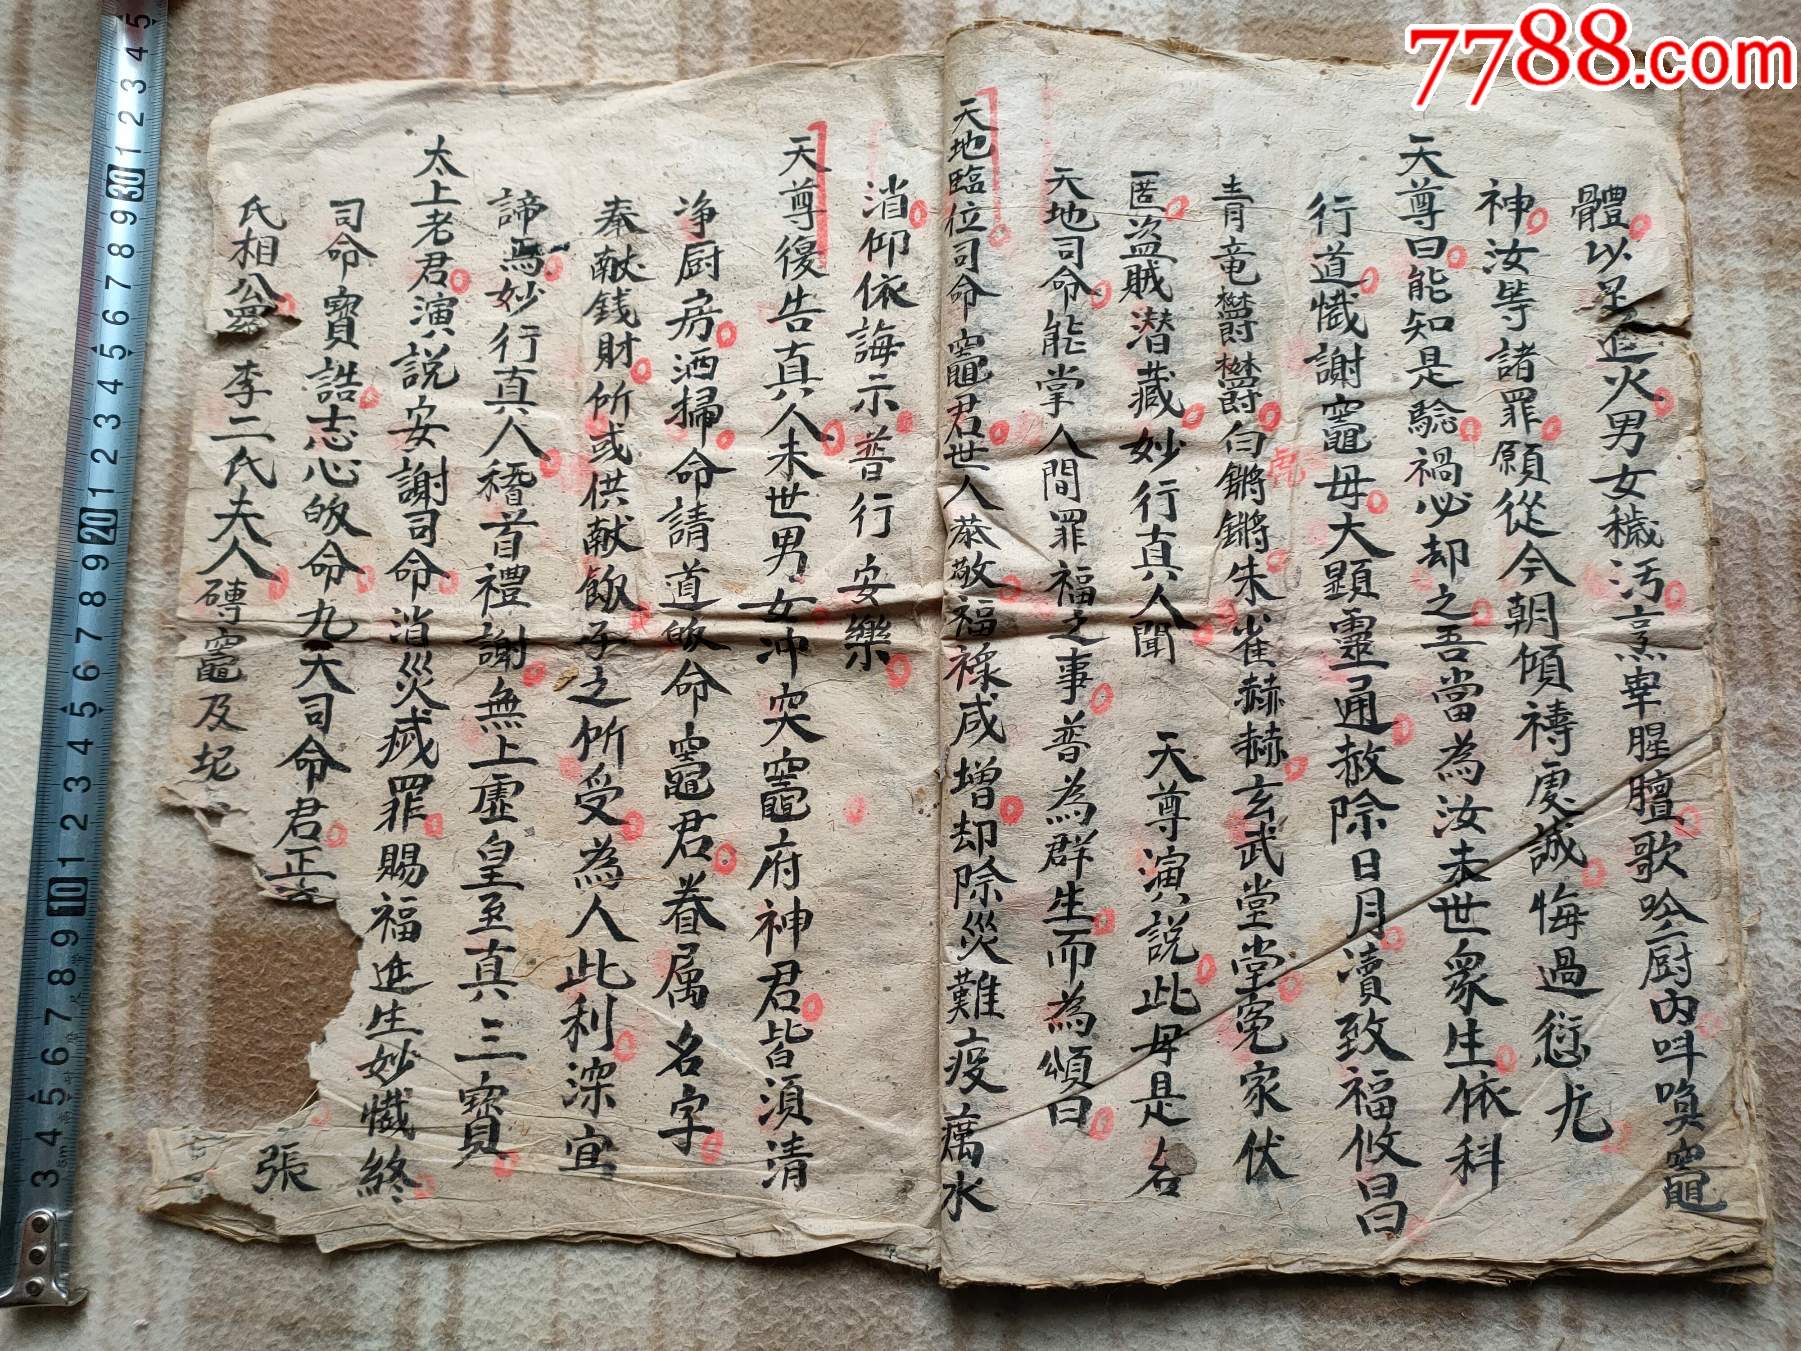 7788.com
體以足進火男女穢汚烹宰腥膻歌吟厨内呌喚竈
神汝等諸罪願從今朝傾禱虔誠悔過愆尤
天尊曰能知是騐禍必却之吾當為汝未世衆生依科
行道懺謝竈毋大顕靈通赦除日月瀆致福攸昌曰
青竜欝欝白虎鏘鏘朱雀赫赫玄武堂堂寃家伏
匿盗賊潜藏妙行真人聞 天尊演説此毋是名
天地司命能掌人間罪福之事普為群生而為頌曰
天地臨位司命竈君世人恭敬福祿咸增却除災難疫癘水
消仰依誨示普行安樂
天尊復告真人未世男女冲突竈府神君皆湏清
净厨房洒掃命請道皈命竈君眷属名字
奉献錢財所或供献飯子之所受為人此利深宜
諦焉妙行真人稽首禮謝無上虚皇至真三寶
太上老君演説安謝司命消災滅罪賜福進生妙懺終
司命寳誥志心皈命九天司命君正
張
氏相公 李二氏夫人 磚竈及坭